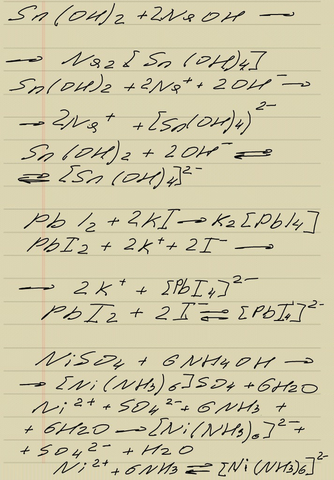 Sn(OH)2 + 2NaOH →
→ Na2[Sn(OH)4]
Sn(OH)2 + 2Na⁺ + 2OH⁻ →
→ 2Na⁺ + [Sn(OH)4)²⁻
Sn(OH)2 + 2OH⁻ ⇌
⇌ [Sn(OH)4]²⁻
PbI2 + 2KI → K2[PbI4]
PbI2 + 2K⁺ + 2I⁻ →
→ 2K⁺ + [PbI4]²⁻
PbI2 + 2I⁻ ⇌ [PbI4]²⁻
NiSO4 + 6NH4OH →
→ [Ni(NH3)6]SO4 + 6H2O
Ni²⁺ + SO4²⁻ + 6NH3 +
+ 6H2O → [Ni(NH3)6]²⁺
+ SO4²⁻ + H2O
Ni²⁺ + 6NH3 ⇌ [Ni(NH3)6]²⁻